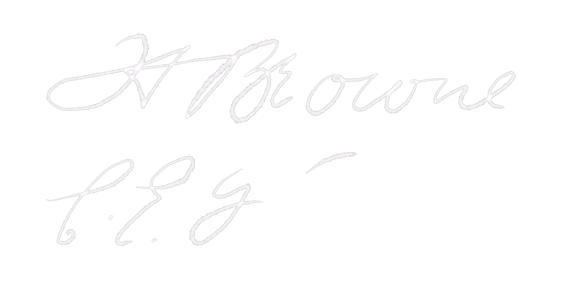 H Browne
C. E. G